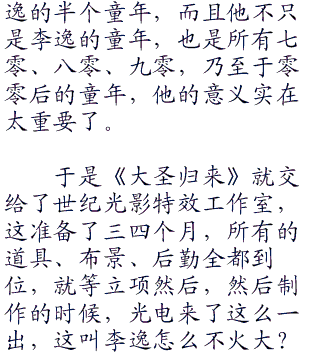 逸的半个童年，而且他不只
是李逸的童年，也是所有七
零、八零、九零，乃至于零
零后的童年，他的意义实在
太重要了。
于是《大圣归来》就交
给了世纪光影特效工作室，
这准备了三四个月，所有的
道具、布景、后勤全都到
位，就等立项然后，然后制
作的时候，光电来了这么一
出，这叫李逸怎么不火大？